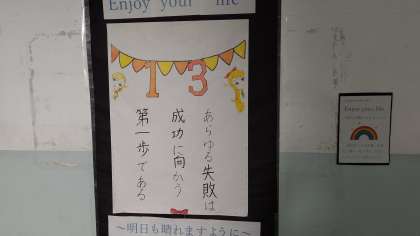 Enjoy your life
13
あらゆる失敗は
成功に向かう
第一歩である
～明日も晴れますように～
Enjoy your life